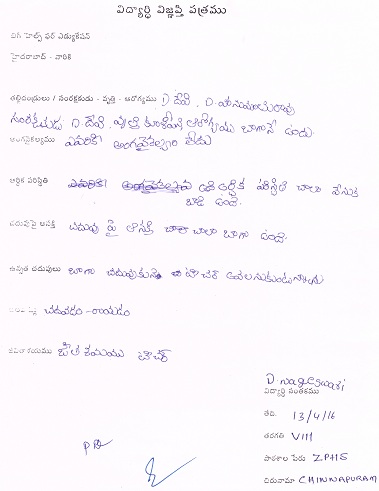 విద్యార్ధి విజ్ఞప్తి పత్రము
హెల్ప్ ఫర్ ఎడ్యుకేషన్
హైదరాబాద్ - వారికి
తల్లిదండ్రులు / సంరక్షకుడు - వృత్తి - ఆరోగ్యము D దేవి, D. హనుమంతురావు
సంరక్షకుడు D. దేవి, వృత్తి కూలిపని ఆరోగ్యము బాగానే ఉంది.
అంగవైకల్యము ఎవరికి అంగవైకల్యం లేదు
ఆర్థిక పరిస్థితి ఆర్థిక పరిస్థితి చాలా వెనుక
బడి ఉంది.
చదువుపై ఆసక్తి చదువు పై ఆసక్తి చాలా బాగా ఉంది.
ఉన్నత చదువులు బాగా చదువుకుని టీచర్ అవ్వాలనుకుంటున్నాను
చదవడం - రాయడం
జీవిత ఆశయము టీచర్
D. nageswari
విద్యార్ధి సంతకము
తేది. 13/4/16
తరగతి VIII
పాఠశాల పేరు ZPHS
చిరునామా CHINNAPURAM